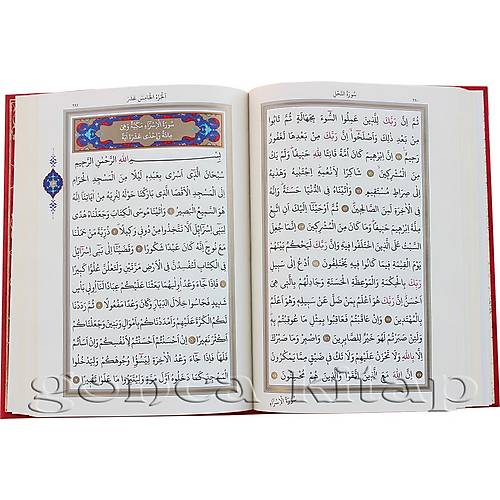 سُورَةُ النَّحْلِ
٢٨٠
ثُمَّ إِنَّ رَبَّكَ لِلَّذِينَ عَمِلُوا السُّوءَ بِجَهَالَةٍ ثُمَّ تَابُوا
مِنْ بَعْدِ ذٰلِكَ وَأَصْلَحُوا إِنَّ رَبَّكَ مِنْ بَعْدِهَا لَغَفُورٌ
رَحِيمٌ إِنَّ إِبْرٰهِيمَ كَانَ أُمَّةً قَانِتًا لِلّٰهِ حَنِيفًا وَلَمْ يَكُ
مِنَ الْمُشْرِكِينَ شَاكِرًا لِأَنْعُمِهِ اجْتَبٰيهُ وَهَدٰيهُ
إِلٰى صِرَاطٍ مُسْتَقِيمٍ وَاٰتَيْنَاهُ فِي الدُّنْيَا حَسَنَةً وَإِنَّهُ
فِي الْاٰخِرَةِ لَمِنَ الصَّالِحِينَ ثُمَّ أَوْحَيْنَا إِلَيْكَ أَنِ اتَّبِعْ
مِلَّةَ إِبْرٰهِيمَ حَنِيفًا وَمَا كَانَ مِنَ الْمُشْرِكِينَ إِنَّمَا جُعِلَ
السَّبْتُ عَلَى الَّذِينَ اخْتَلَفُوا فِيهِ وَإِنَّ رَبَّكَ لَيَحْكُمُ بَيْنَهُمْ
يَوْمَ الْقِيٰمَةِ فِيمَا كَانُوا فِيهِ يَخْتَلِفُونَ أُدْعُ إِلٰى سَبِيلِ
رَبِّكَ بِالْحِكْمَةِ وَالْمَوْعِظَةِ الْحَسَنَةِ وَجَادِلْهُمْ بِالَّتِي هِيَ
أَحْسَنُ إِنَّ رَبَّكَ هُوَ أَعْلَمُ بِمَنْ ضَلَّ عَنْ سَبِيلِهِ وَهُوَ أَعْلَمُ
بِالْمُهْتَدِينَ وَإِنْ عَاقَبْتُمْ فَعَاقِبُوا بِمِثْلِ مَا عُوقِبْتُمْ بِهِ
وَلَئِنْ صَبَرْتُمْ لَهُوَ خَيْرٌ لِلصَّابِرِينَ وَاصْبِرْ وَمَا صَبْرُكَ
إِلَّا بِاللّٰهِ وَلَا تَحْزَنْ عَلَيْهِمْ وَلَا تَكُ فِي ضَيْقٍ مِمَّا يَمْكُرُونَ
إِنَّ اللّٰهَ مَعَ الَّذِينَ اتَّقَوْا وَالَّذِينَ هُمْ مُحْسِنُونَ
سُورَةُ الْإِسْرَاءِ
اَلْجُزْءُ الْخَامِسَ عَشَرَ
سُورَةُ الْإِسْرَاءِ مَكِّيَّةٌ وَهِيَ
مِائَةٌ وَإِحْدٰى عَشْرَةَ اٰيَةً
بِسْمِ اللّٰهِ الرَّحْمٰنِ الرَّحِيمِ
سُبْحَانَ الَّذِي أَسْرٰى بِعَبْدِهِ لَيْلًا مِنَ الْمَسْجِدِ الْحَرَامِ
إِلَى الْمَسْجِدِ الْأَقْصَا الَّذِي بَارَكْنَا حَوْلَهُ لِنُرِيَهُ مِنْ اٰيَاتِنَا إِنَّهُ
هُوَ السَّمِيعُ الْبَصِيرُ وَاٰتَيْنَا مُوسَى الْكِتَابَ وَجَعَلْنَاهُ هُدًى
لِبَنِي إِسْرَائِيلَ أَلَّا تَتَّخِذُوا مِنْ دُونِي وَكِيلًا ذُرِّيَّةَ مَنْ حَمَلْنَا
مَعَ نُوحٍ إِنَّهُ كَانَ عَبْدًا شَكُورًا وَقَضَيْنَا إِلٰى بَنِي إِسْرَائِيلَ
فِي الْكِتَابِ لَتُفْسِدُنَّ فِي الْأَرْضِ مَرَّتَيْنِ وَلَتَعْلُنَّ عُلُوًّا كَبِيرًا
فَإِذَا جَاءَ وَعْدُ أُولٰيهُمَا بَعَثْنَا عَلَيْكُمْ عِبَادًا لَنَا أُولِي بَأْسٍ
شَدِيدٍ فَجَاسُوا خِلَالَ الدِّيَارِ وَكَانَ وَعْدًا مَفْعُولًا ثُمَّ رَدَدْنَا
لَكُمُ الْكَرَّةَ عَلَيْهِمْ وَأَمْدَدْنَاكُمْ بِأَمْوَالٍ وَبَنِينَ وَجَعَلْنَاكُمْ
أَكْثَرَ نَفِيرًا إِنْ أَحْسَنْتُمْ أَحْسَنْتُمْ لِأَنْفُسِكُمْ وَإِنْ أَسَأْتُمْ
فَلَهَا فَإِذَا جَاءَ وَعْدُ الْاٰخِرَةِ لِيَسُوؤُا وُجُوهَكُمْ وَلِيَدْخُلُوا
الْمَسْجِدَ كَمَا دَخَلُوهُ أَوَّلَ مَرَّةٍ وَلِيُتَبِّرُوا مَا عَلَوْا تَتْبِيرًا
gonca kitap